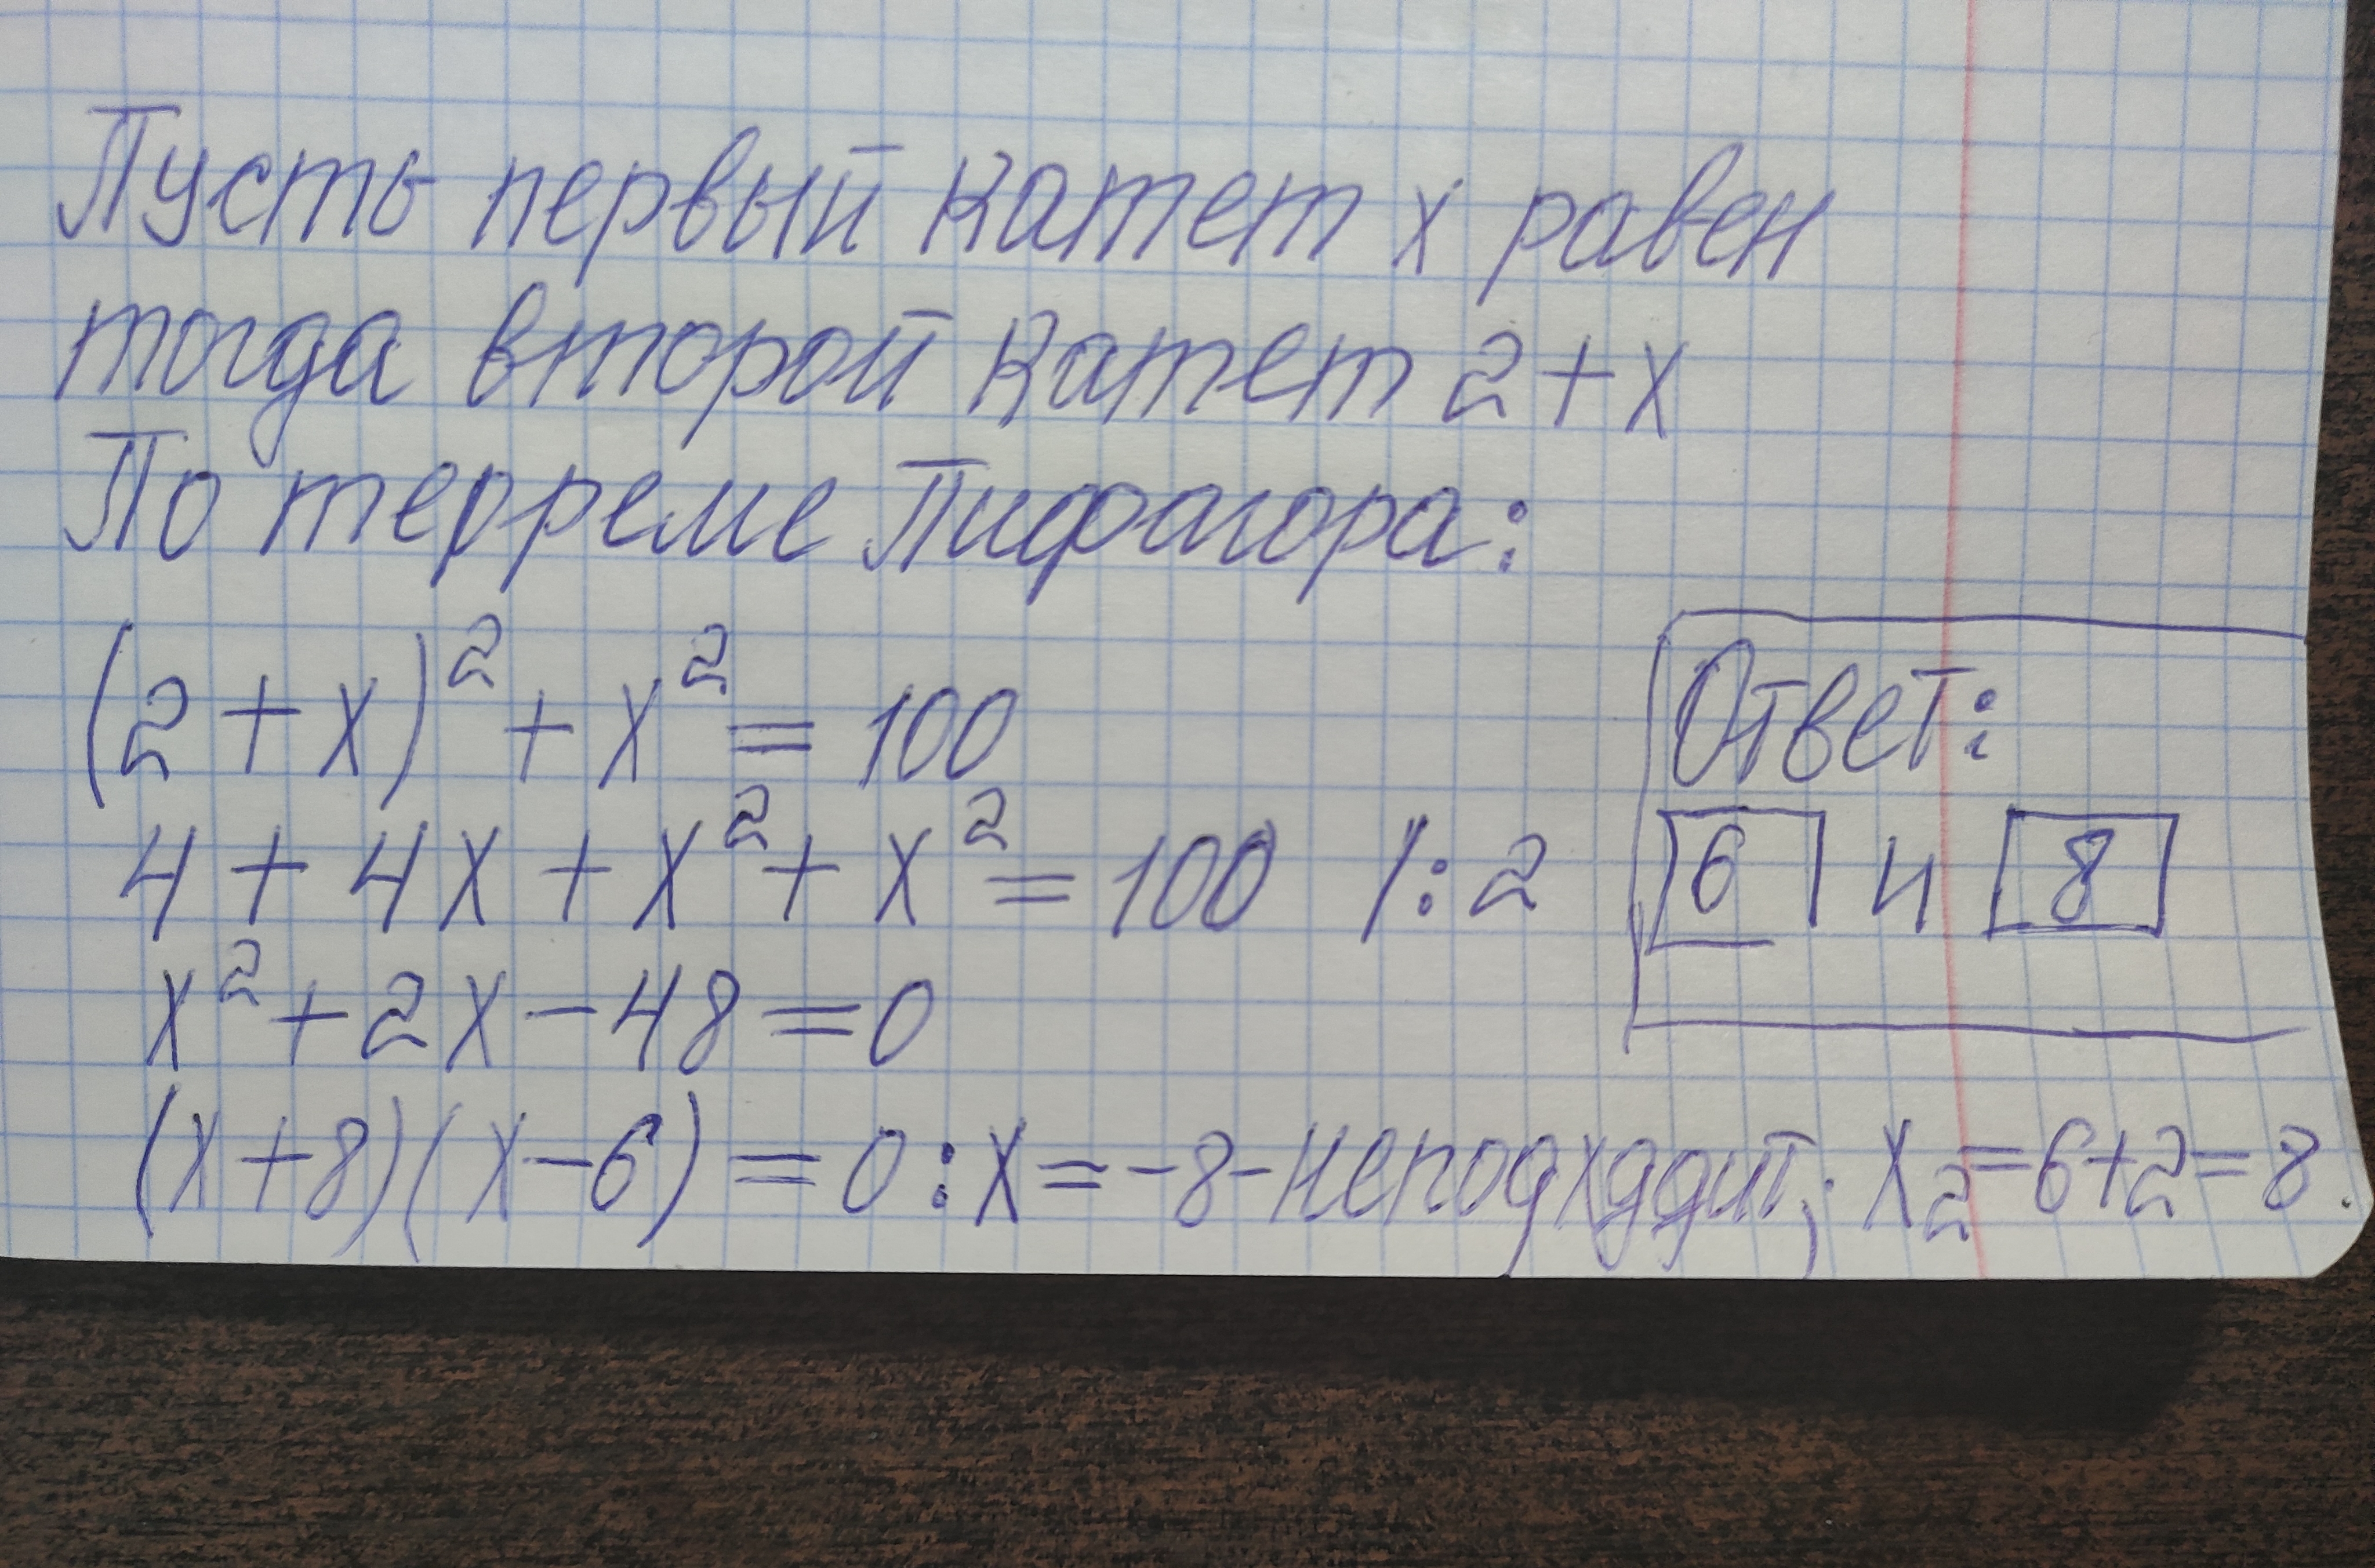 Пусть первый катет x равен
тогда второй катет 2+x
По терреме Пифагора:
(2+x)²+x²=100
4+4x+x²+x²=100 /:2
x²+2x-48=0
(x+8)(x-6)=0:x=-8-неподхддит; x₂=6+2=8.
Ответ:
6 и 8